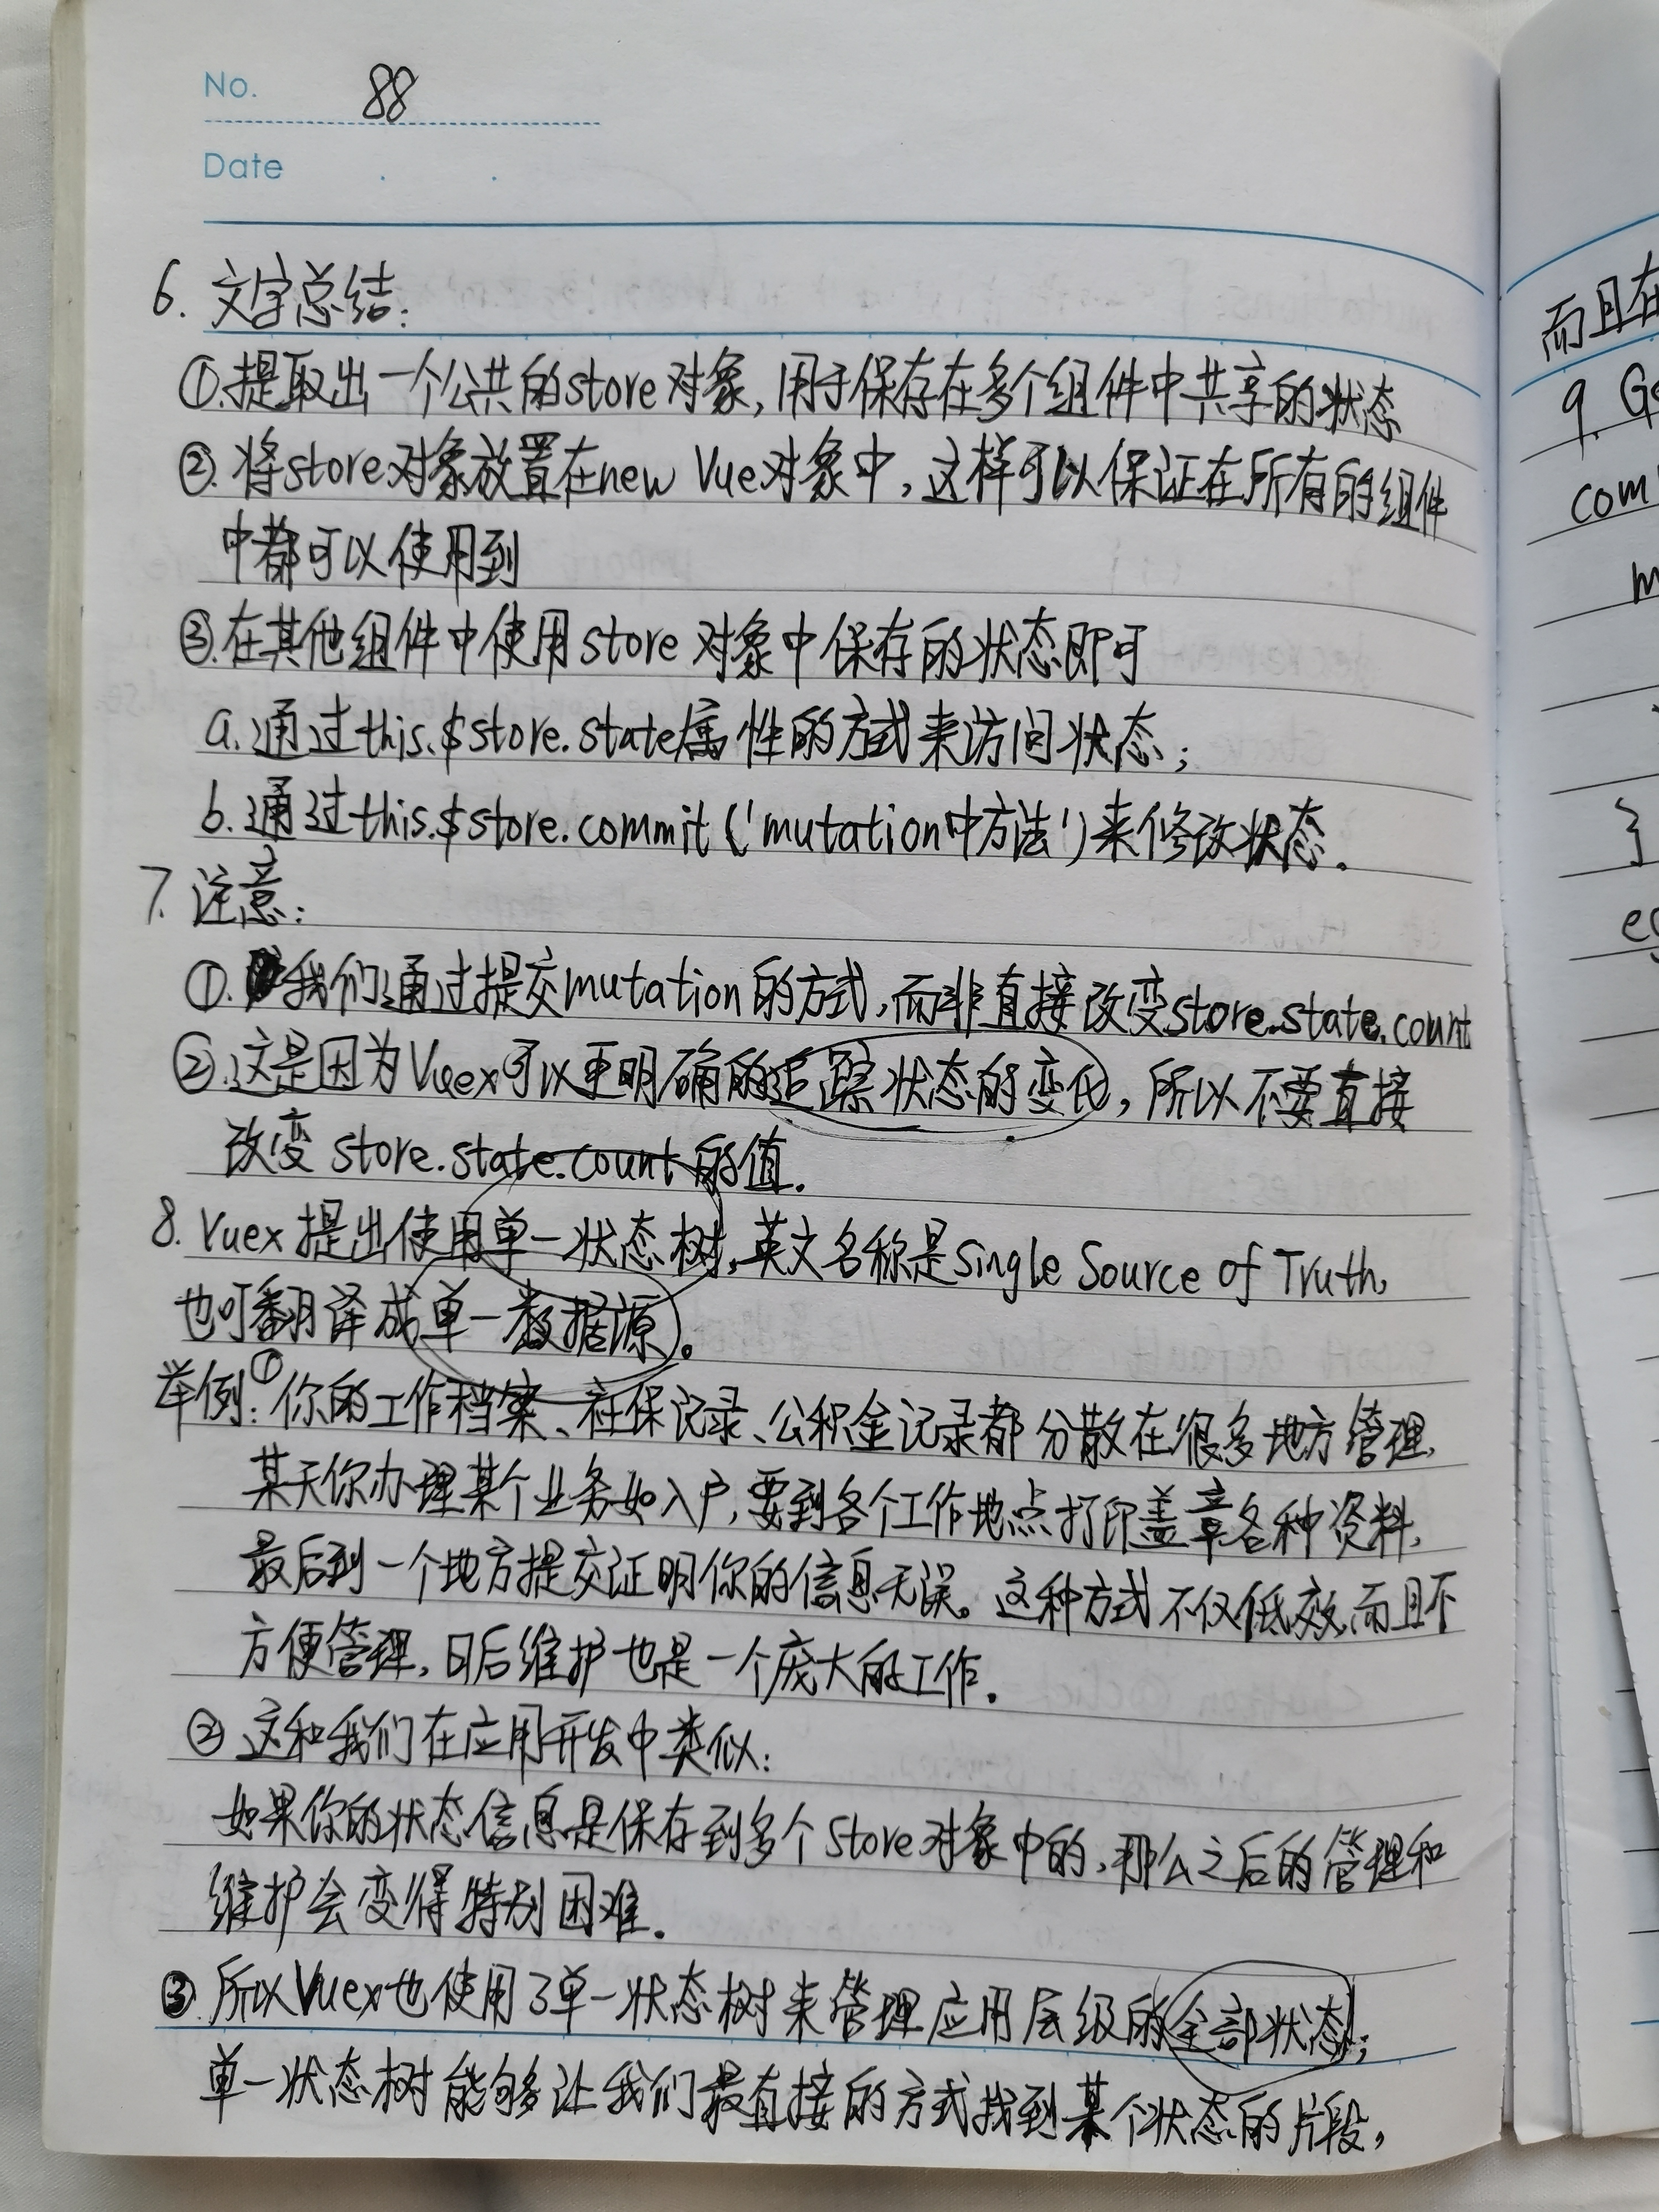 No. 88
Date
6. 文字总结:
①.提取出一个公共的store对象,用于保存在多个组件中共享的状态
②.将store对象放置在new Vue对象中,这样可以保证在所有的组件
中都可以使用到
③.在其他组件中使用store对象中保存的状态即可
a.通过this.$store.state属性的方式来访问状态;
b.通过this.$store.commit('mutation中方法')来修改状态.
7. 注意:
①.我们通过提交mutation的方式,而非直接改变store.state.count
②.这是因为Vuex可以更明确的追踪状态的变化,所以不要直接
改变 store.state.count的值.
8. Vuex提出使用单一状态树,英文名称是Single Source of Truth,
也可翻译成单一数据源。
举例:①你的工作档案、社保记录、公积金记录都分散在很多地方管理,
某天你办理某个业务如入户,要到各个工作地点打印盖章各种资料,
最后到一个地方提交证明你的信息无误。这种方式不仅低效,而且不
方便管理,日后维护也是一个庞大的工作.
② 这和我们在应用开发中类似:
如果你的状态信息是保存到多个Store对象中的,那么之后的管理和
维护会变得特别困难.
③ 所以Vuex也使用了单一状态树来管理应用层级的全部状态;
单一状态树能够让我们最直接的方式找到某个状态的片段,
而且在
9. Ge
com
m
}
eg